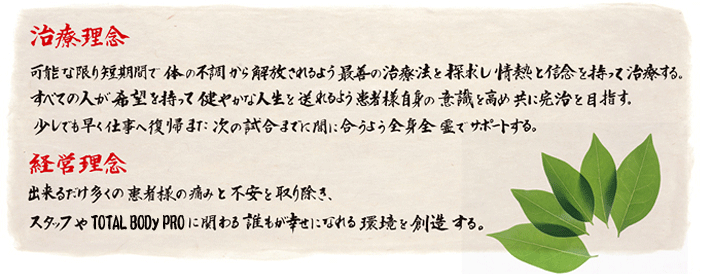 治療理念
可能な限り短期間で体の不調から解放されるよう最善の治療法を探求し情熱と信念を持って治療する。
すべての人が希望を持って健やかな人生を送れるよう患者様自身の意識を高め共に完治を目指す。
少しでも早く仕事へ復帰また次の試合までに間に合うよう全身全霊でサポートする。
経営理念
出来るだけ多くの患者様の痛みと不安を取り除き、
スタッフやTOTAL BODy PROに関わる誰もが幸せになれる環境を創造する。